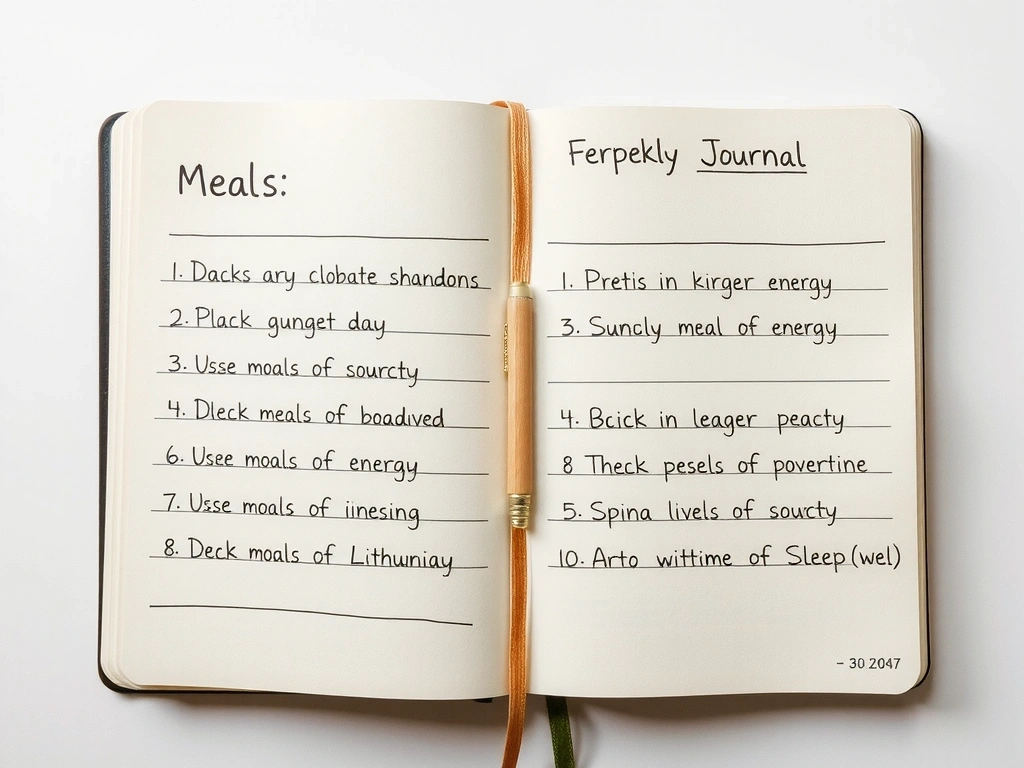 Meals:
1. Dacks ary clobate shandons
2. Plack gunget day
3. Usse moals of sourcty
4. Dleck meals of boadived
6. Usee moals of energy
7. Usse moals of iinesing
8. Deck moals of Lithuniay
Ferpekly Journal
1. Pretis in kirger energy
3. Suncly meal of energy
4. Bcick in leager peacty
8 Theck pesels of povertine
5. Spina livels of sourcty
10. Arto wittime of Sleep (wel)
– 30 2047